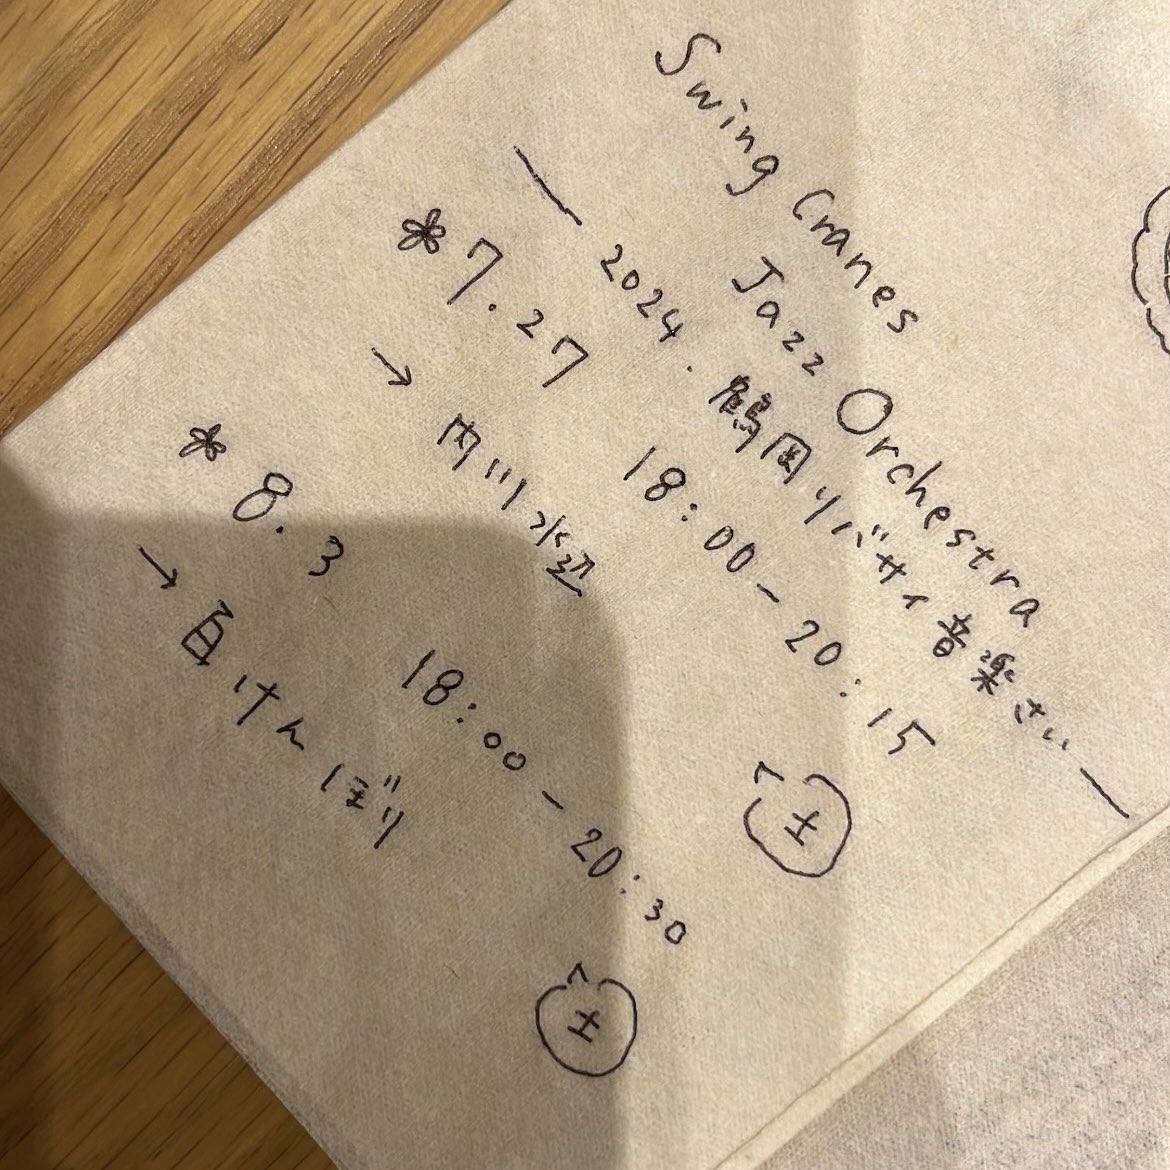 Swing Cranes
Jazz Orchestra
— 2024. 鶴岡リバサイ音楽さい —
* 7.27 18:00 - 20:15 土
→ 内川水辺
* 8.3 18:00 - 20:30 土
→ 百けんぼり